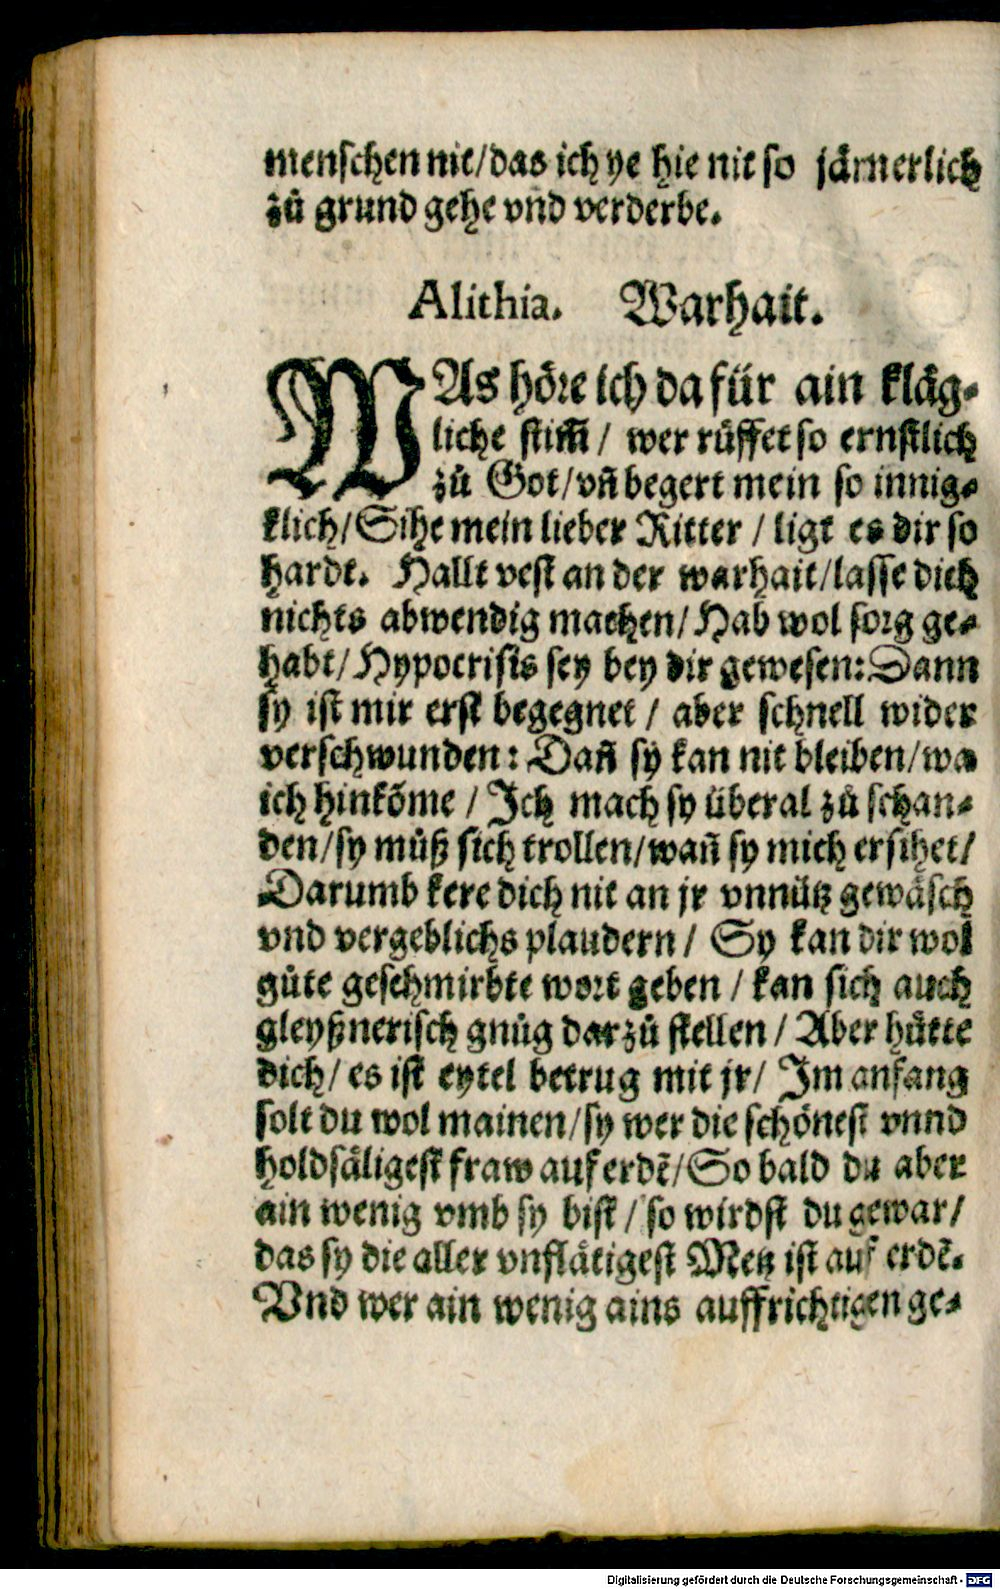 menschen nit/das ich ye hie nit so jämerlich
zů grund gehe vnd verderbe.
Alithia. Warhait.
WAs höre ich da für ain kläg-
liche stim̄/ wer rüffet so ernstlich
zů Got/vn̄ begert mein so innig-
klich/Sihe mein lieber Ritter / ligt es dir so
hardt. Hallt vest an der warhait/lasse dich
nichts abwendig machen/Hab wol sorg ge-
habt/Hypocrisis sey bey dir gewesen: Dann
sy ist mir erst begegnet / aber schnell wider
verschwunden: Dan̄ sy kan nit bleiben/wa
ich hinköme / Ich mach sy überal zů schan-
den/sy můß sich trollen/wan̄ sy mich ersihet/
Darumb kere dich nit an jr vnnütz gewäsch
vnd vergeblichs plaudern/ Sy kan dir wol
gůte geschmirbte wort geben / kan sich auch
gleyßnerisch gnůg darzů stellen / Aber hütte
dich/ es ist eytel betrug mit jr/ Im anfang
solt du wol mainen/sy wer die schönest vnnd
holdsäligest fraw auf erdē/So bald du aber
ain wenig vmb sy bist / so wirdst du gewar/
das sy die aller vnflätigest Metz ist auf erdē.
Vnd wer ain wenig ains auffrichtigen ge-
Digitalisierung gefördert durch die Deutsche Forschungsgemeinschaft - DFG